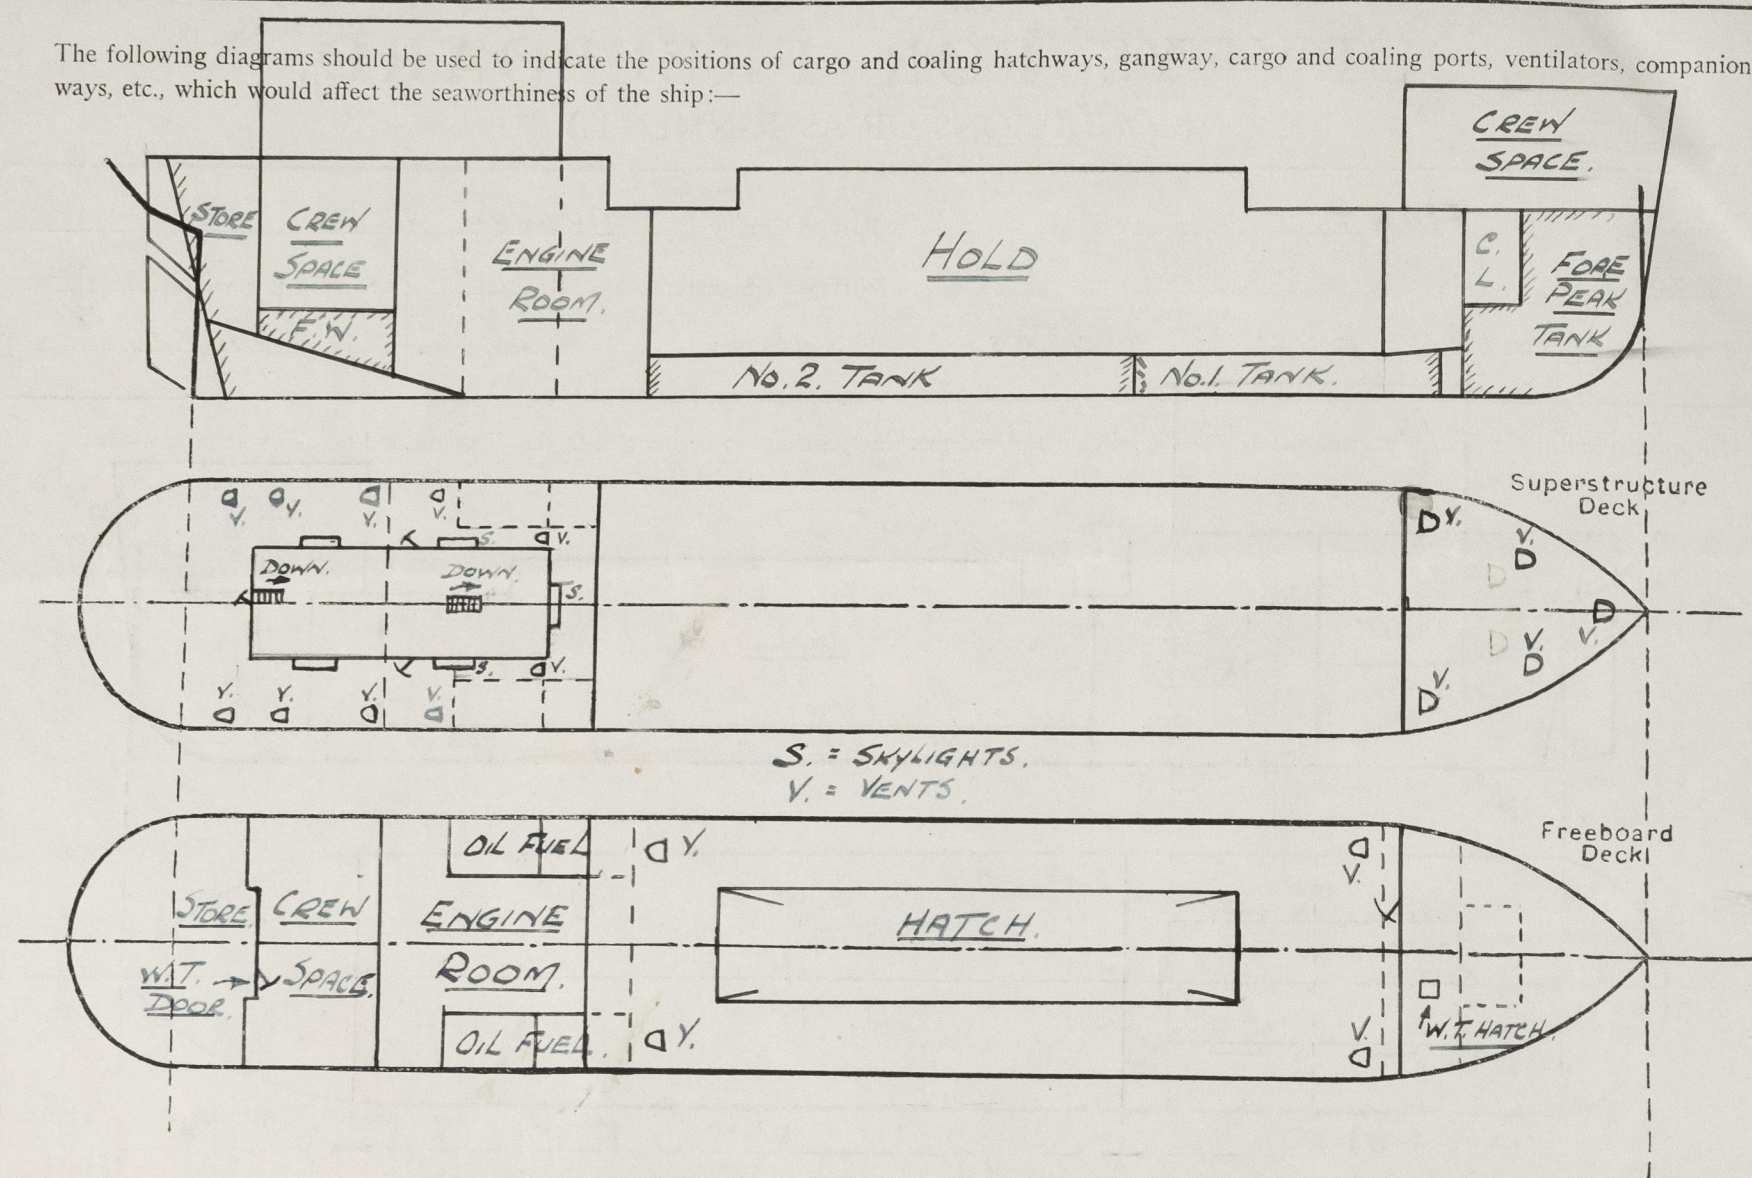 The following diagrams should be used to indicate the positions of cargo and coaling hatchways, gangway, cargo and coaling ports, ventilators, companion
ways, etc., which would affect the seaworthiness of the ship:—
CREW
SPACE.
STORE
CREW
SPACE
F.W.
ENGINE
ROOM.
HOLD
C.
L.
FORE
PEAK
TANK
No. 2. TANK
No. 1. TANK.
Superstructure
Deck
V. V. V. V. V. V.
S. V.
DOWN. DOWN.
S.
V.
S. V.
V. V.
V. V. V. V. V.
S. = SKYLIGHTS.
V. = VENTS.
Freeboard
Deck
OIL FUEL V. V.
STORE CREW ENGINE HATCH.
W.T. DOOR SPACE. ROOM.
OIL FUEL. V. V. W.T. HATCH